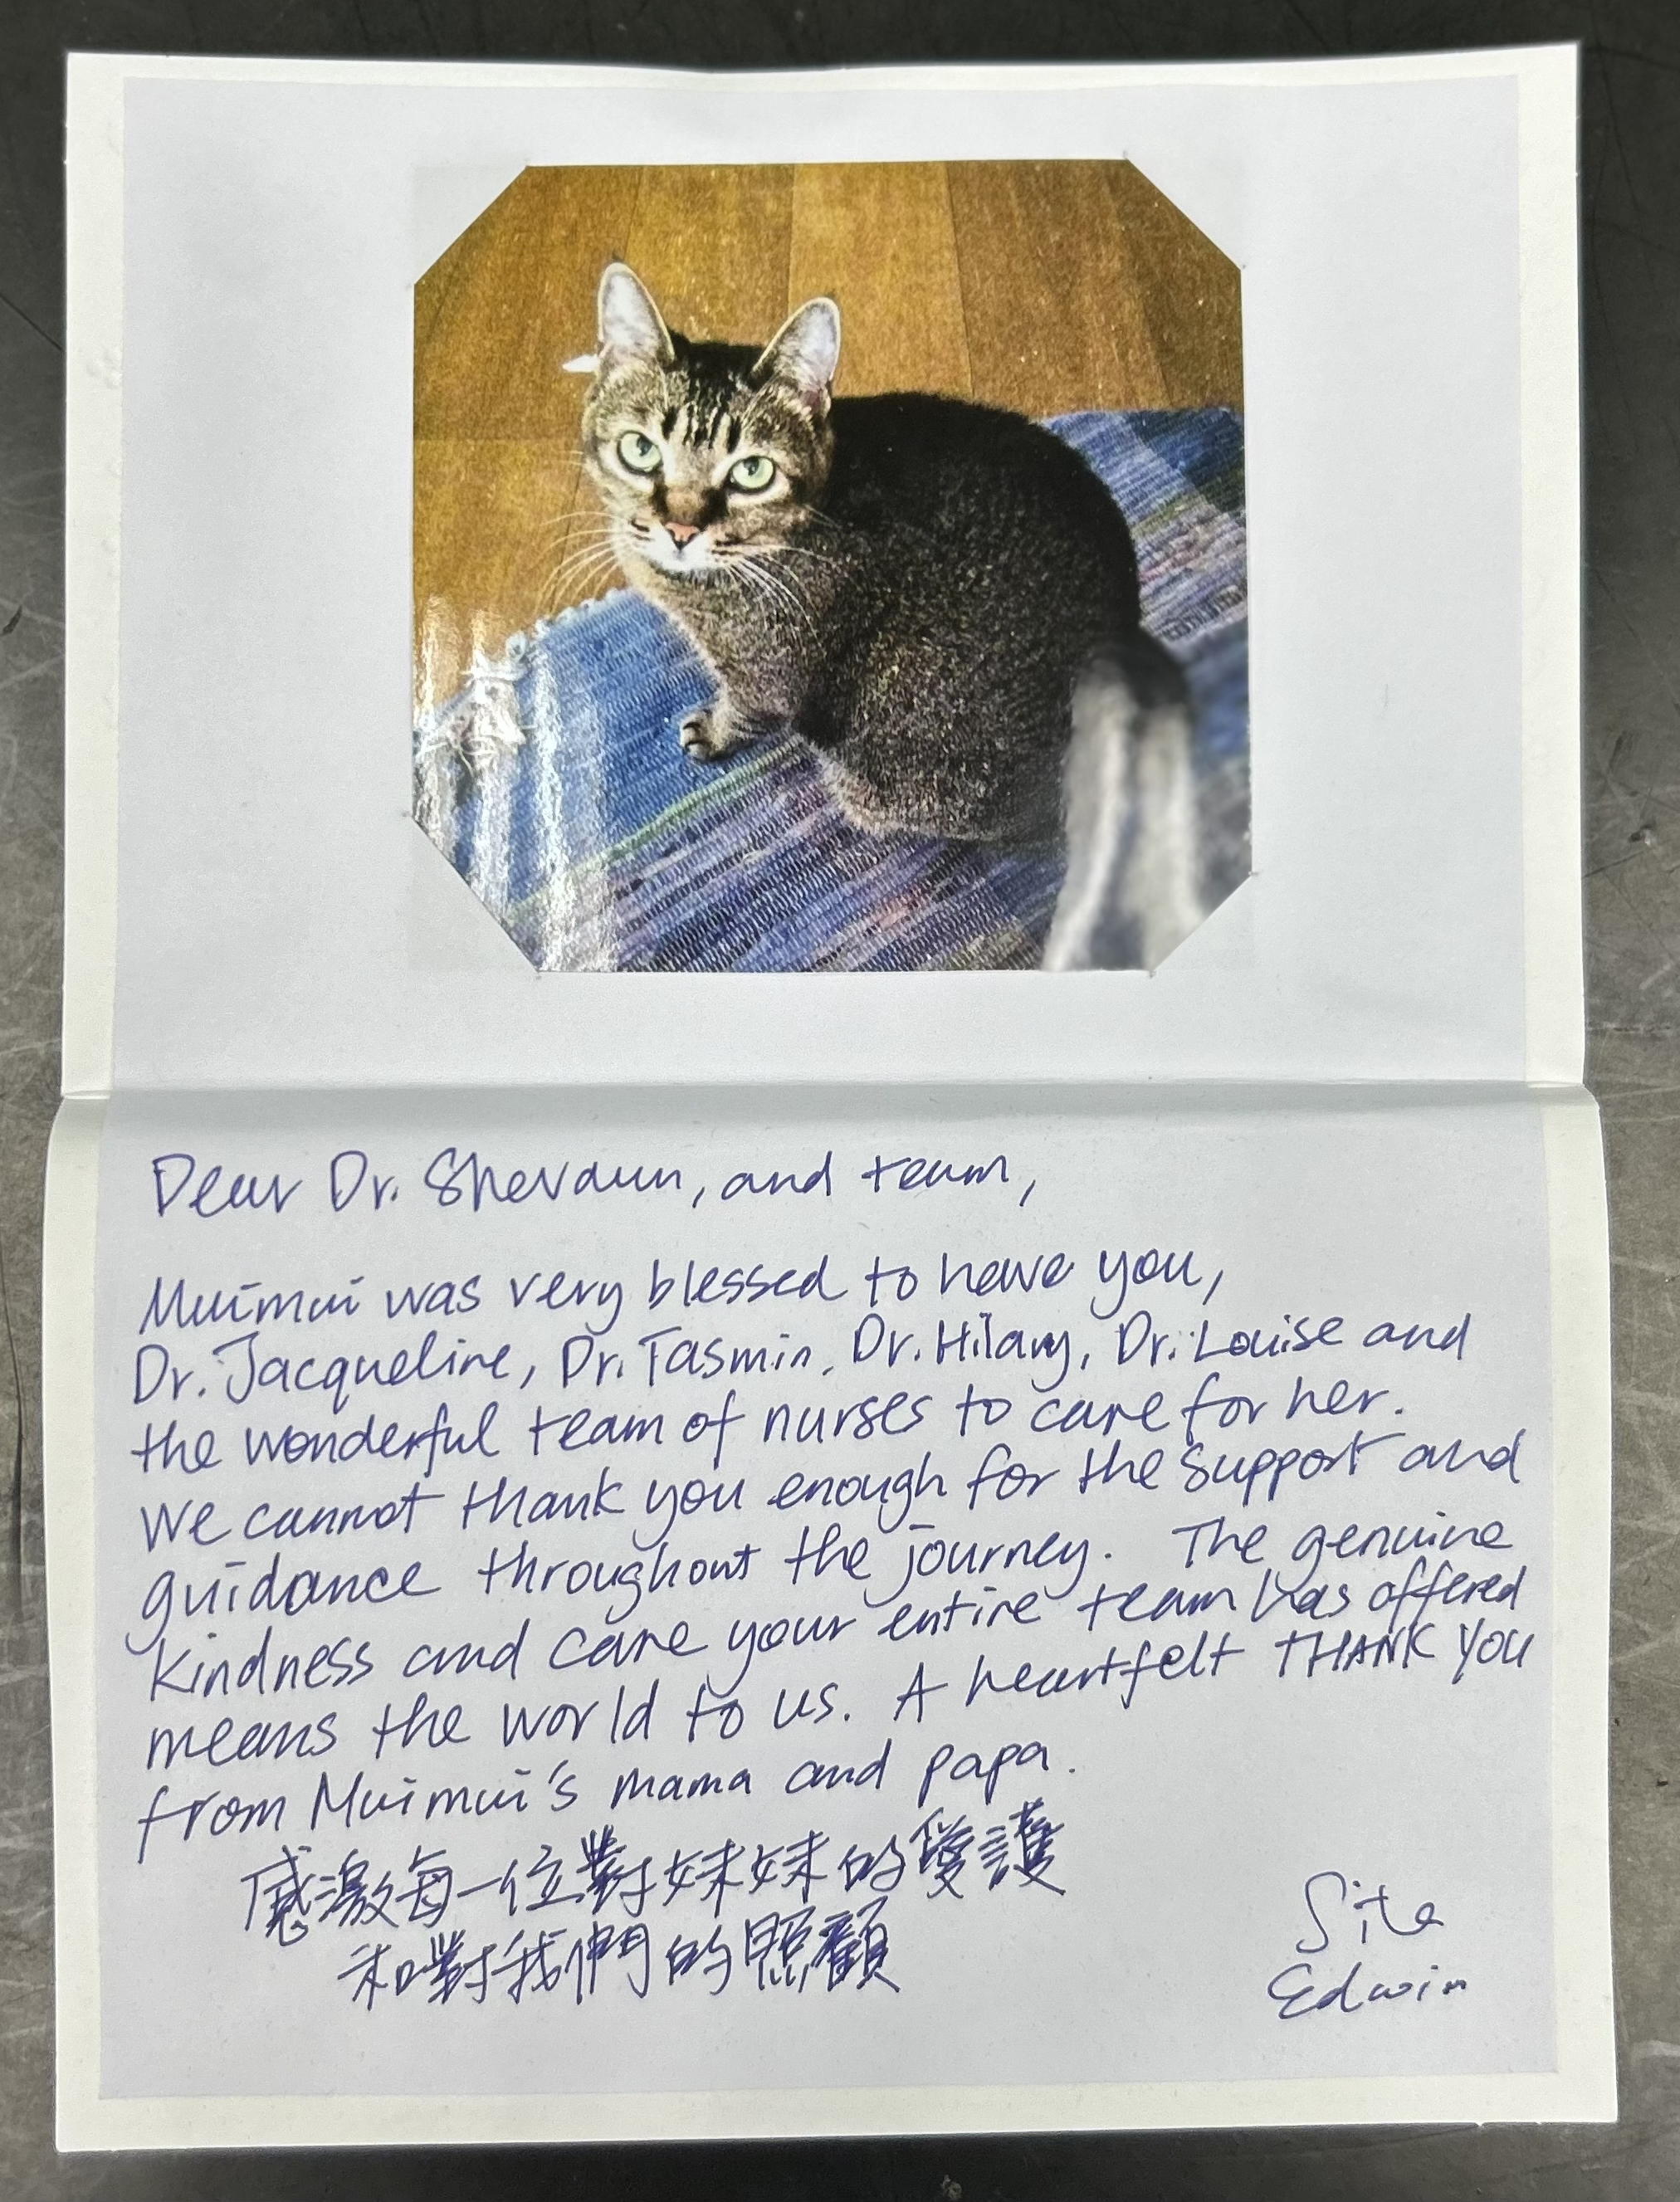 Dear Dr. Shevaun, and team,
Muimui was very blessed to have you,
Dr. Jacqueline, Dr. Tasmin, Dr. Hilary, Dr. Louise and
the wonderful team of nurses to care for her.
We cannot thank you enough for the support and
guidance throughout the journey. The genuine
kindness and care your entire team has offered
means the world to us. A heartfelt THANK YOU
from Muimui's mama and papa.
感激每一位對妹妹的愛護
和對我們的照顧
Sita
Edwin